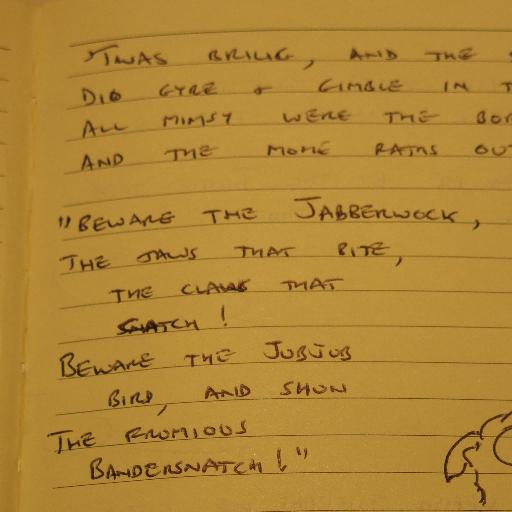 'TWAS BRILIG, AND THE
DID GYRE + GIMBLE IN
ALL MIMSY WERE THE
AND THE MOME RATHS OUT
"BEWARE THE JABBERWOCK,
THE JAWS THAT BITE,
THE CLAWS THAT
SNATCH!
BEWARE THE JUBJUB
BIRD, AND SHUN
THE FRUMIOUS
BANDERSNATCH!"